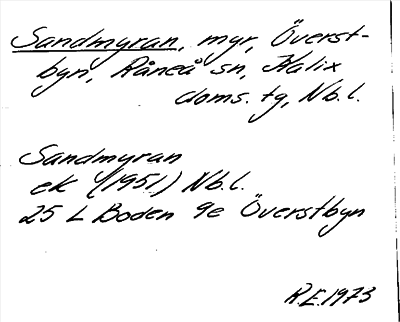 Sandmyran, myr, Överst-
byn, Råneå sn, Kalix
doms. tg, Nb.l.
Sandmyran
ek (1951) Nb.l.
25 L Boden 9e Överstbyn
R.E. 1973